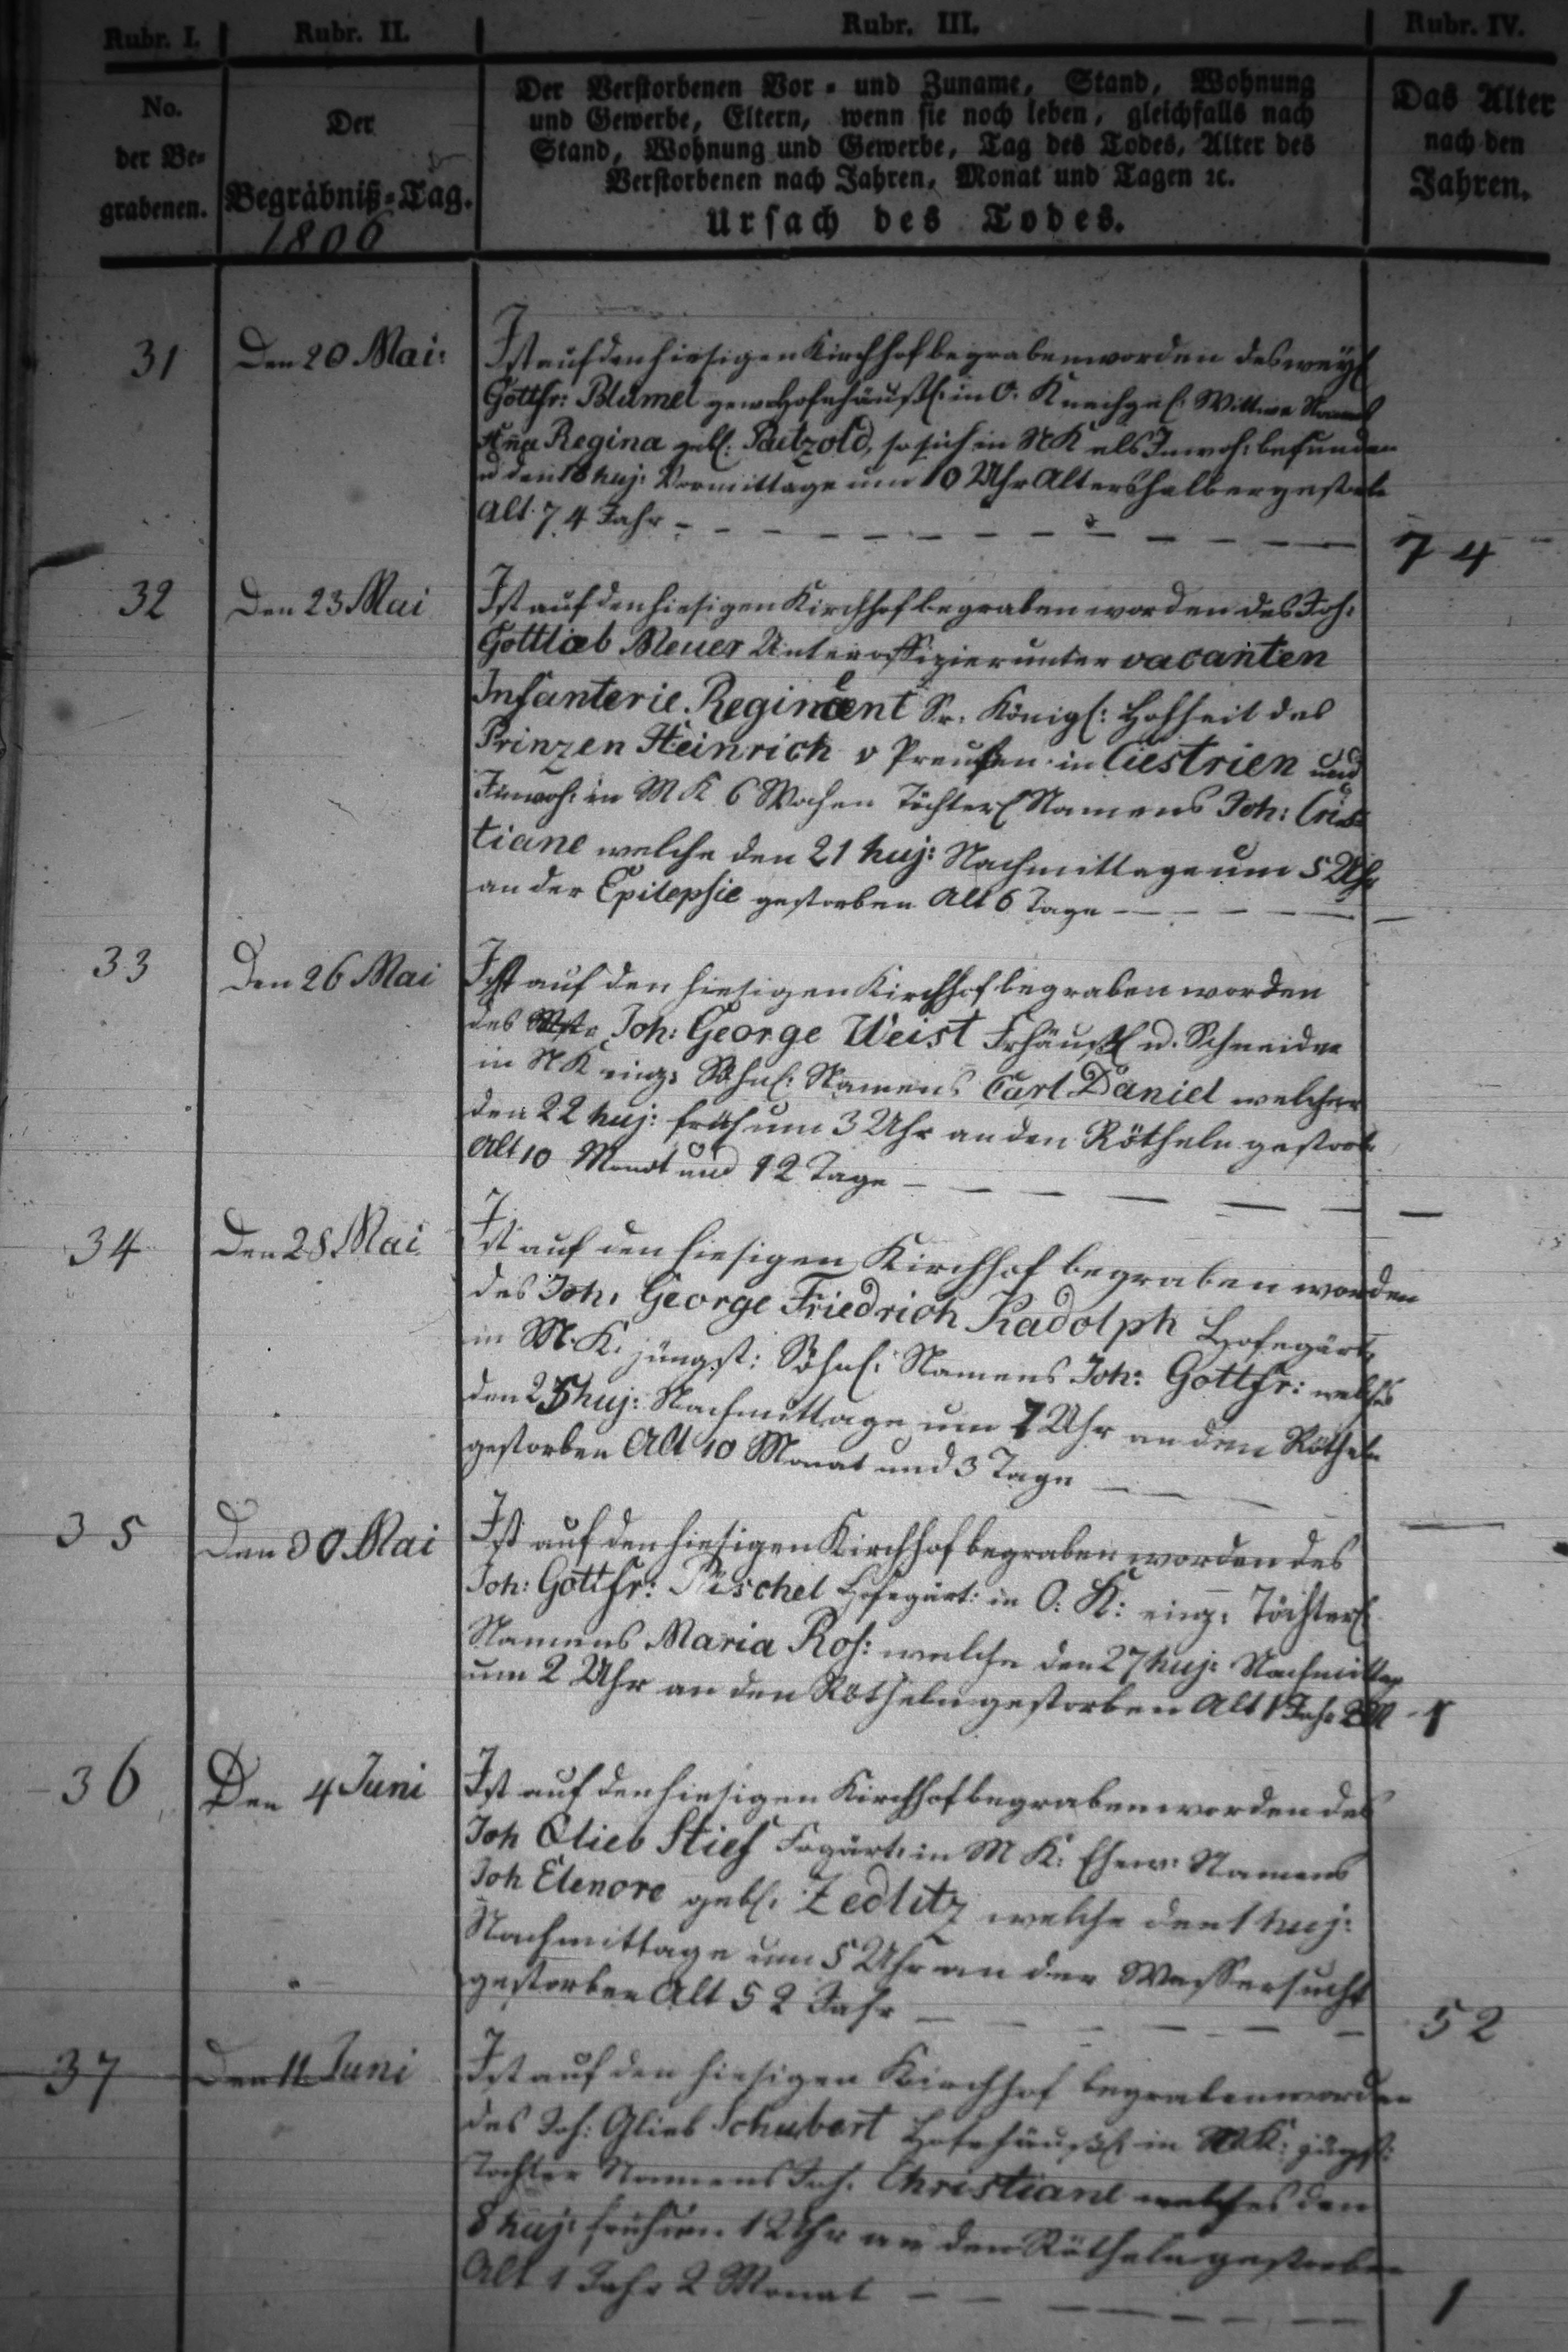 Rubr. I. Rubr. II. Rubr. III. Rubr. IV.
No.
der Be-
grabenen.
Der
Begräbniß-Tag.
1806
Der Verstorbenen Vor- und Zuname, Stand, Wohnung
und Gewerbe, Eltern, wenn sie noch leben, gleichfalls nach
Stand, Wohnung und Gewerbe, Tag des Todes, Alter des
Verstorbenen nach Jahren, Monat und Tagen ꝛc.
Ursach des Todes.
Das Alter
nach den
Jahren.
31 Den 20 Mai:
Ist auf den hiesigen Kirchhof begraben worden des weyl
Gottfr: Blümel gew. Hofehäußl: in O. Wittwe Namens
Aña Regina gebl: Paetzold, so sich in NK als Inwoh: befunden
u den 18 huj: Vormittage um 10 Uhr Altershalber gestorb
Alt 74 Jahr - - - 74
32 Den 23 Mai
Ist auf den hiesigen Kirchhof begraben worden des Joh:
Gottlieb Meuer Unteroffizier unter vacanten
Infanterie. Regiment Sr. Königl: Hoheit des
Prinzen Heinrich v Preußen in Ciestrien und
Inwoh: in MK 6 Wochen Töchterl Namens Joh: Cris
tiane welche den 21 huj: Nachmittage um 5 Uhr
an der Epilepsie gestorben Alt 6 Tage - - - -
33 Den 26 Mai
Ist auf den hiesigen Kirchhof begraben worden
des Mstr Joh: George Weist Frhäußl u. Schneider
in NK einz: Söhnl: Namens Carl Daniel welcher
den 22 huj: früh um 3 Uhr an den Rötheln gestorb.
Alt 10 Monat und 12 Tage - - - -
34 Den 28 Mai
Ist auf den hiesigen Kirchhof begraben worden
des Joh: George Friedrich Radolph Hofegärt,
in M.K. jüngst: Söhnl: Namens Joh: Gottfr: welches
den 25 huj: Nachmittage um 7 Uhr an den Rötheln
gestorben Alt 10 Monat und 3 Tage - -
35 Den 30 Mai
Ist auf den hiesigen Kirchhof begraben worden des
Joh: Gottfr: Püschel Hofegärt: in O: K: einz: Töchterl
Namens Maria Ros: welche den 27 huj: Nachmittag
um 2 Uhr an den Rötheln gestorben Alt 1 Jahr 2 M - 1
36 Den 4 Juni
Ist auf den hiesigen Kirchhof begraben worden des
Joh Glieb Stief Frgärt: in M K: Ehew: Namens
Joh Elenore gebl: Zedlitz welche den 1 huj:
Nachmittage um 5 Uhr an der Wassersucht
gestorben Alt 52 Jahr - - - 52
37 Den 11 Juni
Ist auf den hiesigen Kirchhof begraben worden
des Joh: Glieb Schubert Hofehäußl in NK: jüngst:
Tochter Namens Joh. Christiane welches den
8 huj: früh um 1 Uhr an den Rötheln gestorben
Alt 1 Jahr 2 Monat - - - 1